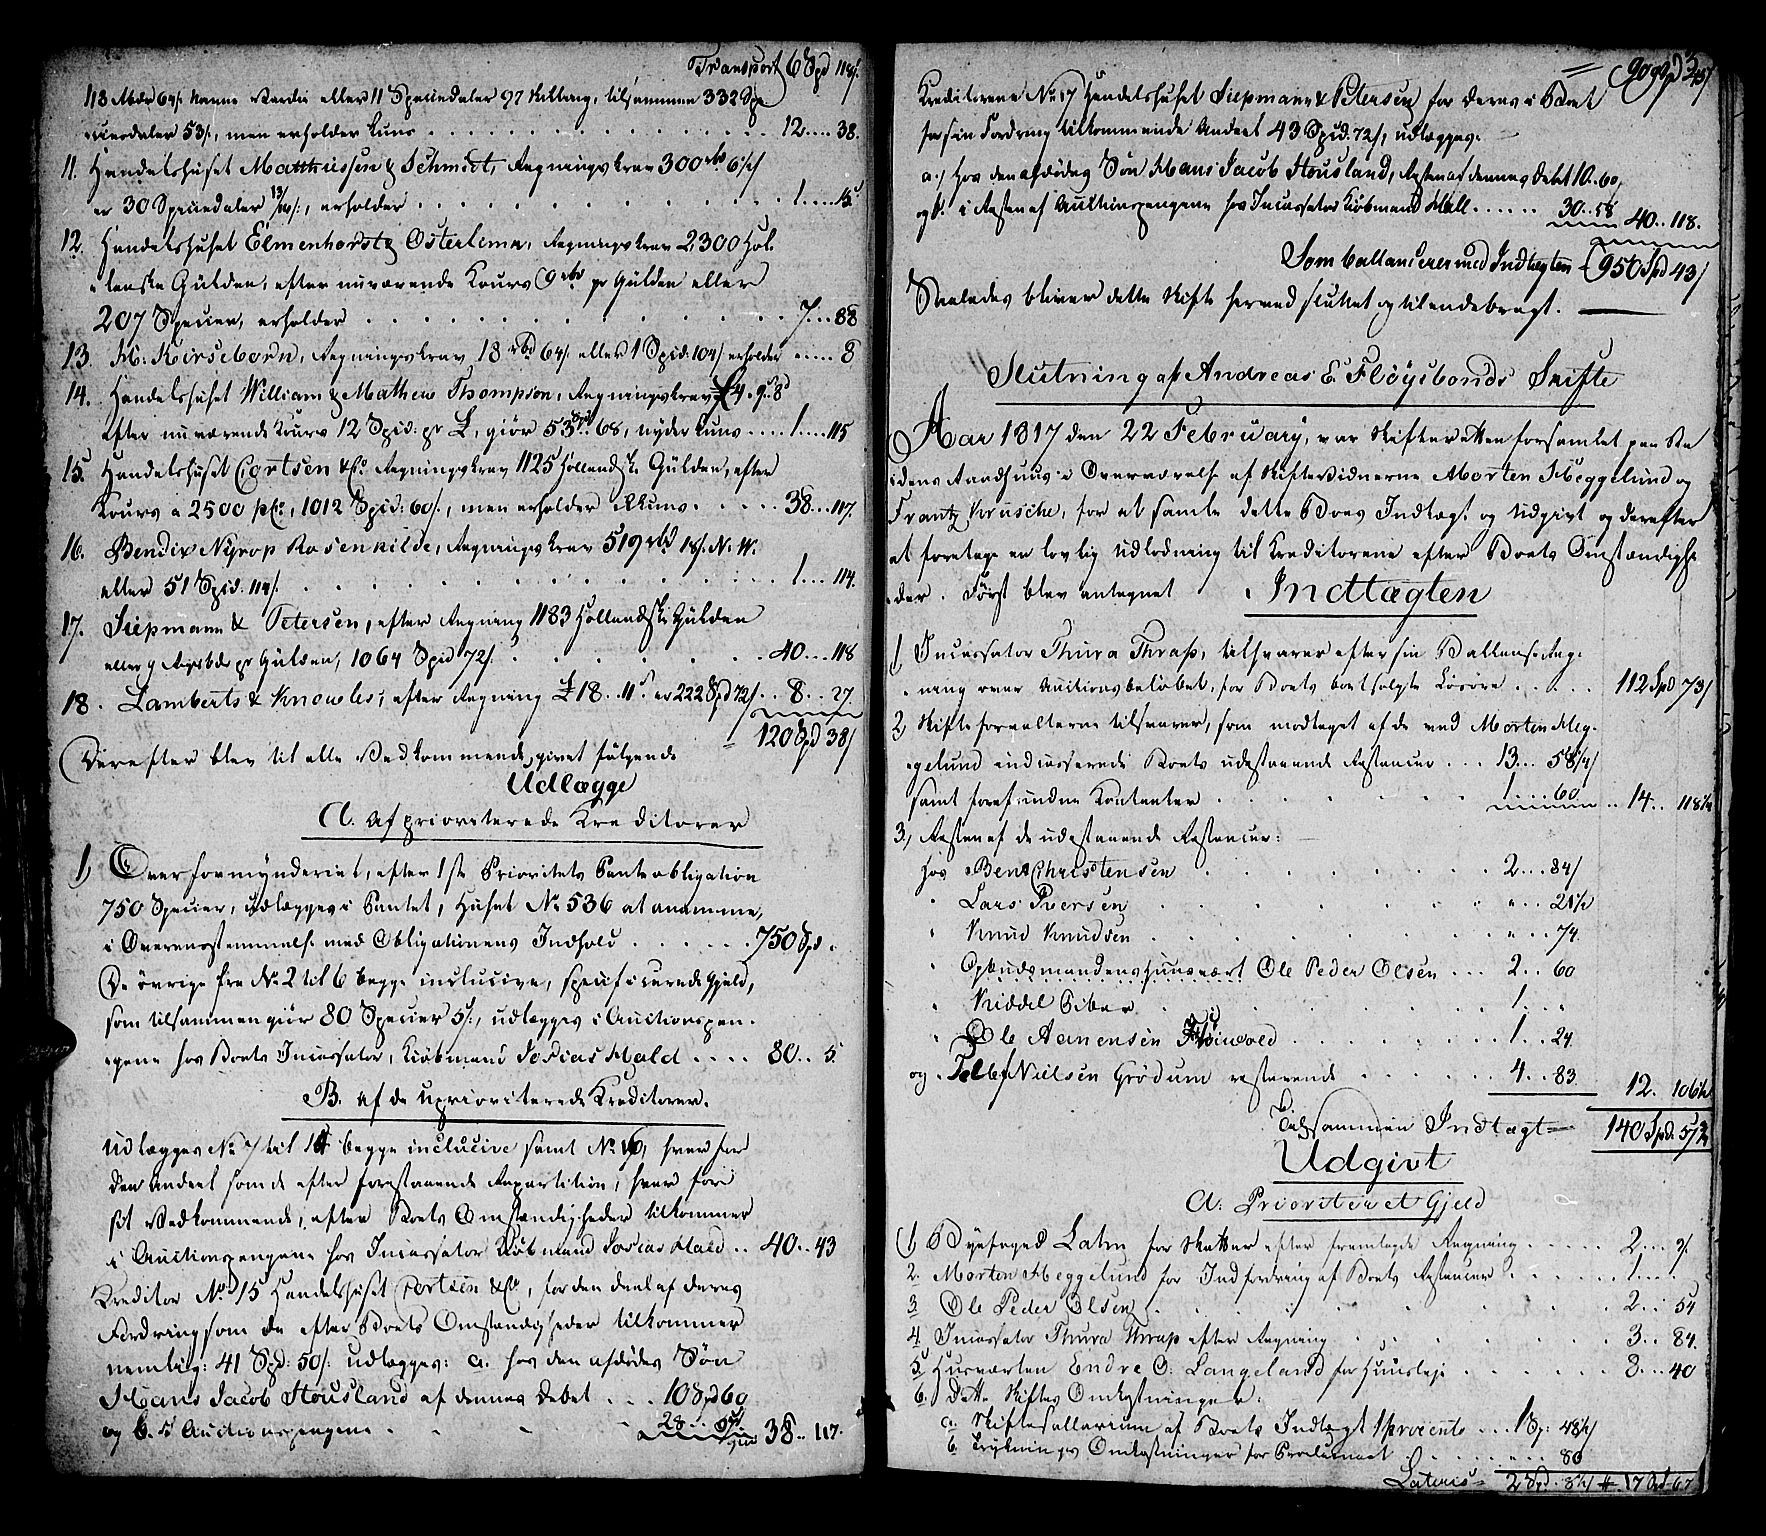 Transport 6 Spd 118/.
113 Mk 64/. Navne Værdie eller 11 Speciedaler 97 Skilling, tilsammen 332 Spe-
ciesdaler 53/., men erholder kuns . . . 12 .... 38.
11. Handelshuset Matthiessen & Schmidt, Regningskrav 300 rbd 6 1/2/
er 30 Speciedaler 13/16/., erholder . . . 1 ....
12. Handelshuset Elmenhorst & Osterlema, Regningskrav 2300 Hol-
lenske Gülden, efter nuværende Kours 9 rbd pr Gülden eller
207 Specier, erholder . . . 7 ... 88
13. H. Kirseborn, Regningskrav 18 rbd 64/. eller 1 Spid: 104/ erholder ..... 8
14. Handelshuset William & Mathew Thompson, Regningskrav £4 . 9 s 8 d
efter nuværende Kours 12 Spid: pr £, giør 53 Spd 68, nyder kuns .... 1 .... 115
15. Handelshuset Cortsen & Co Regningskrav 1125 Hollandsk. Gülden, efter
Kours a 2500 pCt, 1012 Spid: 60/., men erholder ikkuns . . . 38 ... 117.
16. Bendix Nyrop Rosenkilde, Regningskrav 519 rbd 18/. N. V.
eller 51 Spid: 114/. . . . 1 .... 114.
17. Siepmann & Petersen, efter Regning 1183 Hollandske Gülden
eller 9 Rigsbd pr Gülden, 1064 Spid 72/. . . . 40 .... 118
18. Lamberts & Knowles, efter Regning £ 18 .. 11 s er 222 Spd 72/ . . 8 .. 27.
= 120 Spd 38/
Derefter blev til alle Vedkommende, givet følgende
Udlægge
A. af prioriterede Kreditorer
1, Overformynderiet, efter 1ste Prioritets Panteobligation
750 Specier, udlægges i Pantet, Huset No 536 at anamme,
i Overensstemmelse med Obligationens Indhold . . . 750 Spd .
De øvrige fra No 2 til 6 begge inclucive, specificerede Gjeld,
som tilsammen giør 80 Specier 5/., udlægges i Auctionspen-
gene hos Boets Incassator, Kiøbmand Josias Mald .... 80 .. 5.
B. af de uprioriterede Kreditorer.
Udlægges No 7 til 14 begge inclucive samt No 16, hver for
den Andeel som de efter forestaaende Repartition, hver for
sit Vedkommende, efter Boets Omstændigheder tilkommer
i Auctionspengene hos Incassator Kiøbmand Josias Mald .. 40 .. 43
Kreditor No 15 Handelshuset Cortsen & Co, for den deel af deres
Fordring som de efter Boets Omstændigheder tilkommer
nemlig: 41 Spd: 50/. udlægges: a. hos den afdødes Søn
Hans Jacob Housland af dennes Debet . . . 10 Spd 60
og b. i Auctionspengene . . . 28 .. 57 38 .. 117.
909 Spd 45/
Kreditorene No 17 Handelshuset Siepmann & Petersen for deres i Boet
for sin Fordring tilkommende Andeel 43 Spid. 72/, udlægges:
a.) hos den afdødes Søn Hans Jacob Housland, Resten af dennes Debet 10 .. 60,
og b. i Resten af Auctionspengene hos Incassator Kiøbmand Mall ...... 30 .. 58 40 .. 118.
Som ballancerer med Indtægten 950 Spd 43/
Saaledes bliver dette Skifte herved sluttet og tilendebragt.
Slutning af Andreas E. Fløysbonds Skifte
Aar 1817 den 22 February, var Skifteretten forsamlet paa Sta-
dens Raadhuus i Overværelse af Skiftevidnerne Morten Heggelund og
Frantz Krusche, for at samle dette Boes Indtægt og Udgivt og derefter
at foretage en lovlig Udlodning til Kreditorene efter Boets Omstændighe-
der. Først blev antegnet Indtægten
1, Incassator Thura Thrap, tilsvarer efter sin Ballance Reg-
ning over Auctionsbeløbet, for Boets bortsolgte Løsøre . . . 112 Spd 73/
2, Skifteforvalterne tilsvarer, som modtaget af de ved Morten Heg-
gelund indcasserede Boets udestaaende Restancer ... 13 ... 58 1/2/
samt forefundne Kontanter . . . 1 .... 60 .. 14 .. 118 1/2
3, Resten af de udestaaende Restancer:
hos Bent Christensen . . . 2 ... 84/
" Lars Iversen . . . " .. 21 1/2
" Knud Knudsen . . . " ... 74.
" Ombudsmandens Huusvært Ole Peder Olsen ... 2 .. 60
" Kiddel Biber . . . 1 .. "
" Ole Aanensen Høinvold . . . 1 .. 24
og Tollef Nielsen Grödum restenrende . . . 4 .. 83. 12. 106 1/2
Tilsammen Indtægt = 140 Spd. 57 1/2
Udgivt
A. Prioriteret Gjeld
1, Byefoged Lahn for Skatter efter fremlagde Regning . . . 2 ... 9/.
2. Morten Heggelund for Indfordring af Boets Restancer . . . 1 . . .
3 Ole Peder Olsen . . . 2 .. 54
4. Incassator Thura Thrap efter Regning . . . 3 .. 84.
5. Husværten Endre O. Langeland for Huusleje . . . 8 ... 40
6. Dette Skiftes Omkostninger.
a. Skiftesallarium af Boets Indtægt 1 procento ... 1 Sp: 48 1/2/
b. Tryknings Omkostninger for Proclamaet . . . 80
Lateris = 2 Spd. 8 1/2/ # 17 Spd 67